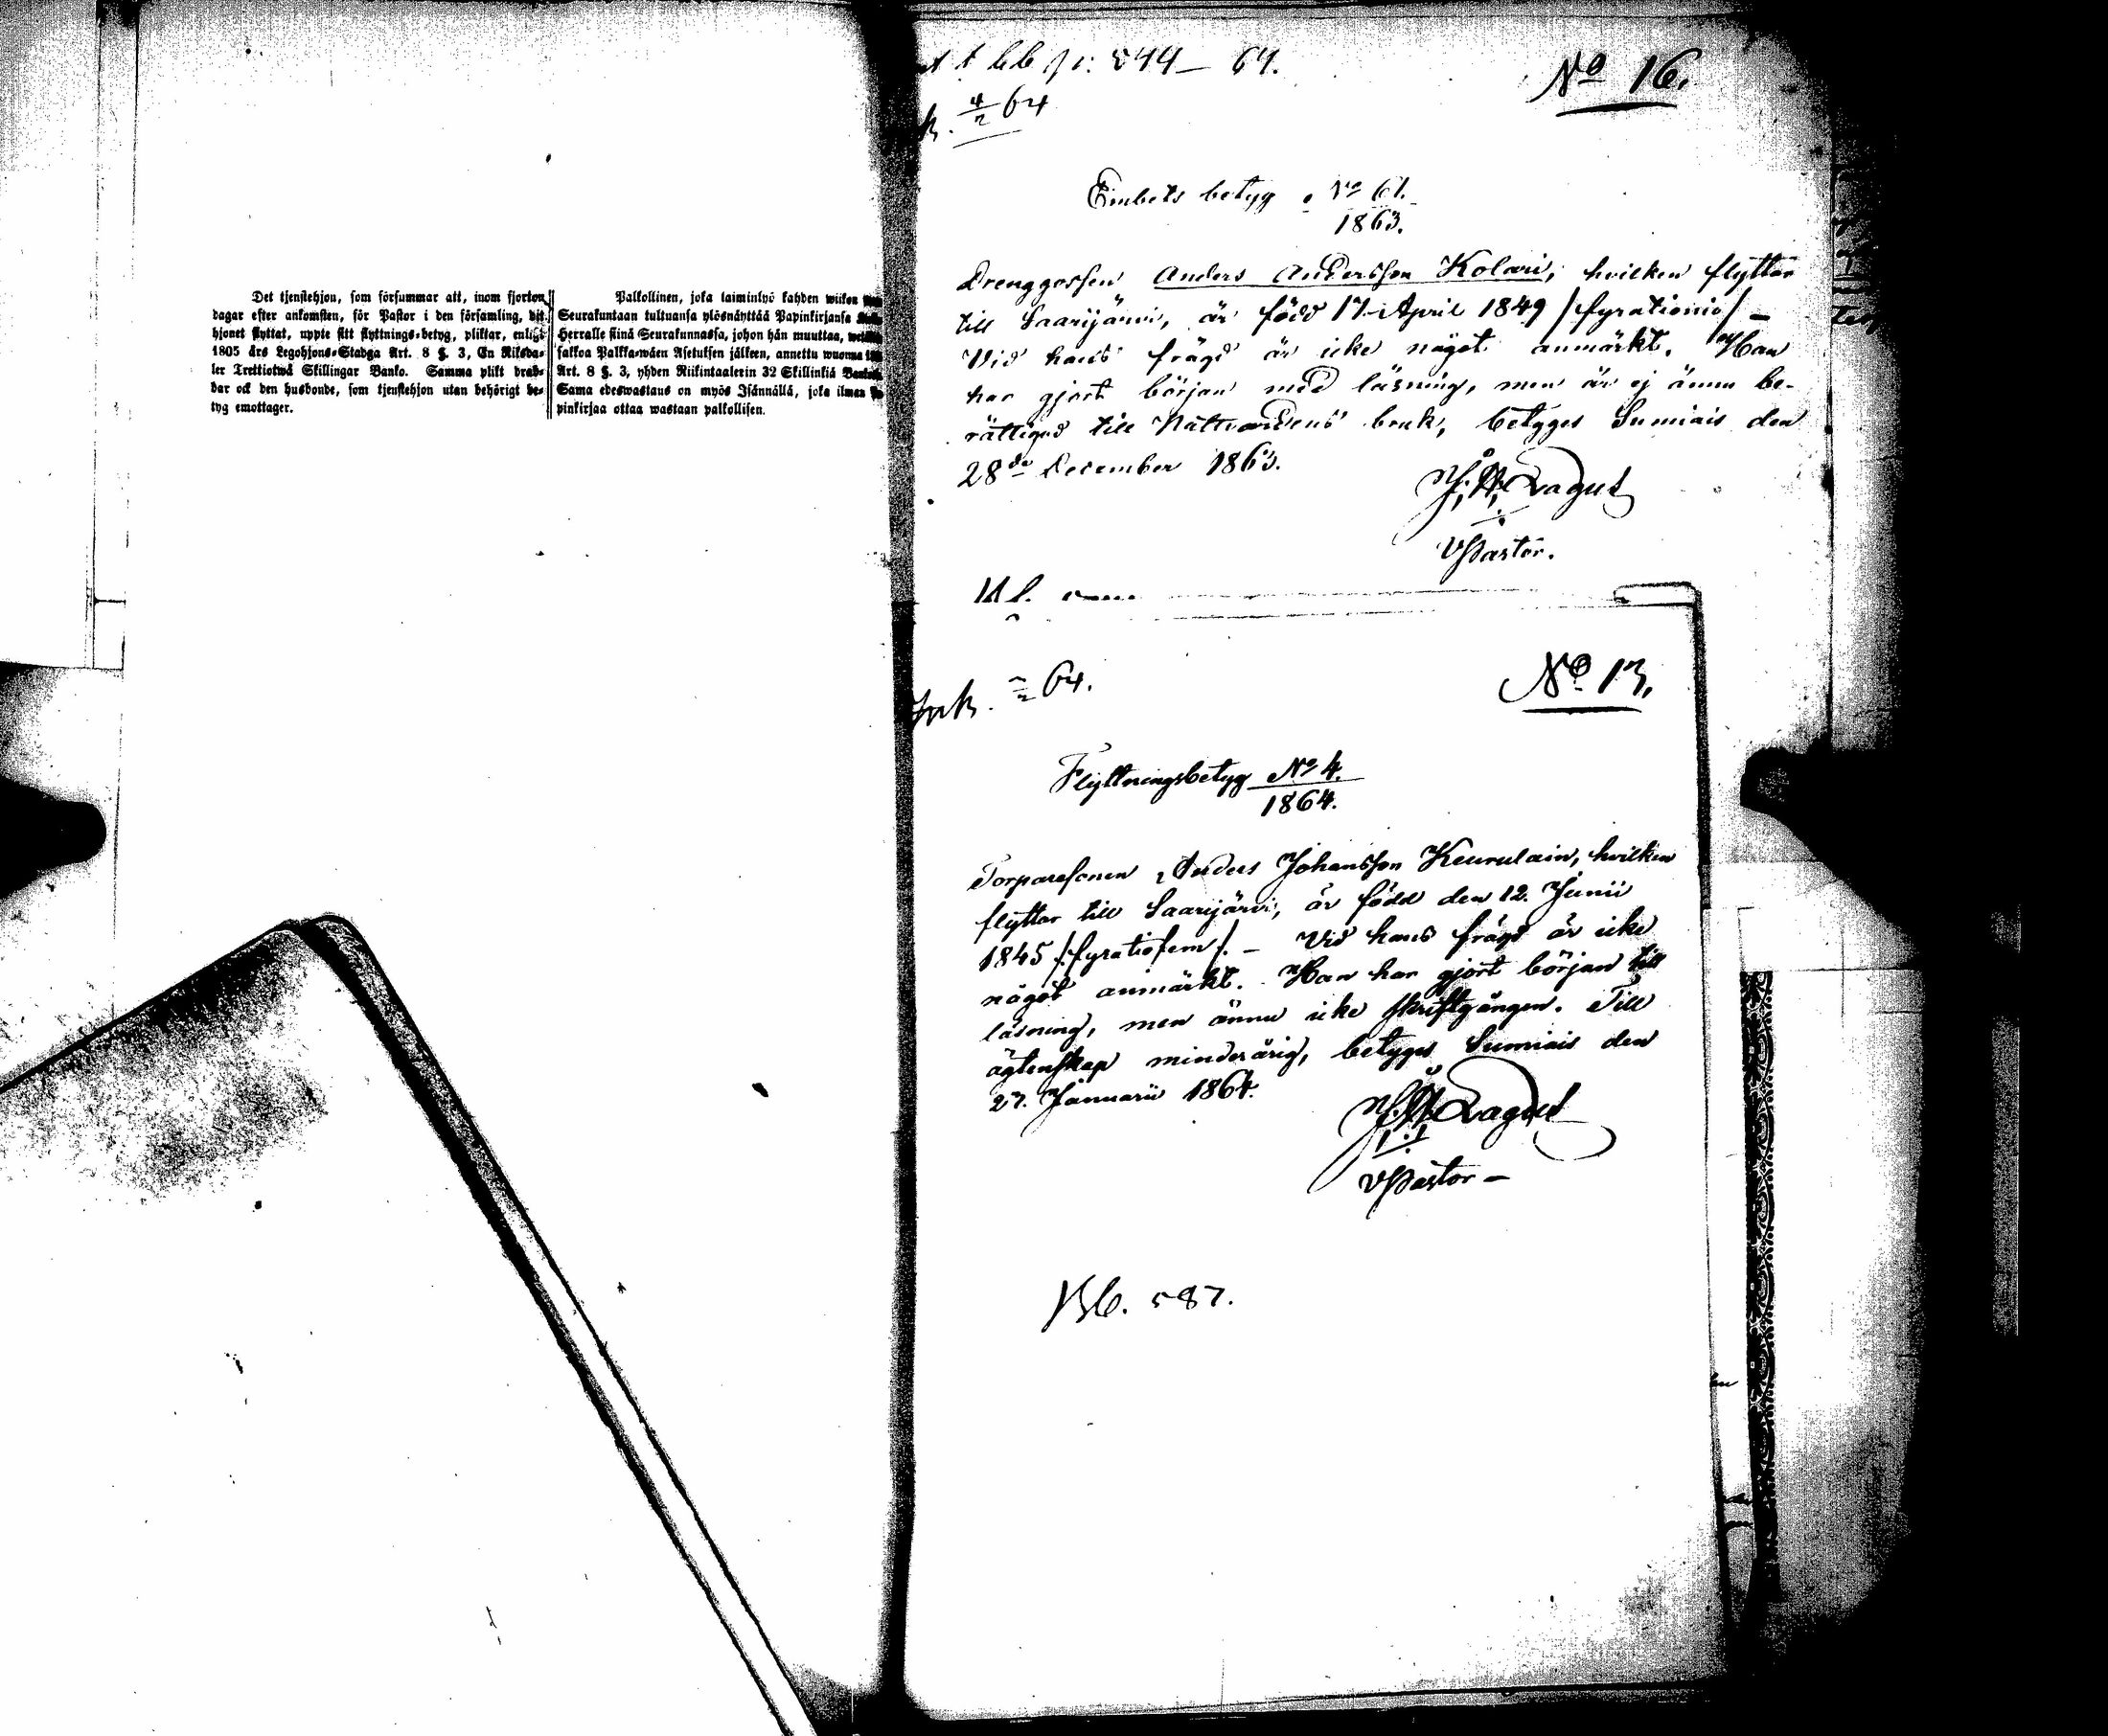 Det tjenstehjon, som försummar att, inom fjorton
dagar efter ankomsten, för Pastor i den församling, dit
hjonet flyttat, uppte sitt flyttnings-betyg, pliktar, enligt
1805 års Legohjons-Stadga Art. 8 §. 3, En Riksda-
ler Trettiotwå Skillingar Banko. Samma plikt drab-
bar ock den husbonde, som tjenstehjon utan behörigt be-
tyg emottager.
Palkollinen, joka laiminlyö kahden wiikon
Seurakuntaan tultuansa ylösnäyttää Papinkirjansa
Herralle siinä Seurakunnassa, johon hän muuttaa,
sakkoa Palkka-wäen Asetuksen jälkeen, annettu wuonna
Art. 8 §. 3, yhden Riikintaalerin 32 Skillinkiä
Sama edeswastaus on myös Isännällä, joka ilman
pinkirjaa ottaa wastaan palkollisen.
544 — 64.
No 16.
4/2 64
Embets betyg No 61.
1863.
Drenggossen Anders Andersson Kolari, hvilken flyttar
till Saarijärvi, är född 17 April 1849 /fyrationio/ —
Vid hans frägd är icke något anmärkt. Han
har gjort början med läsning, men är ej ännu be-
rättigad till Nattvardens bruk, betyges Sumiais den
28de December 1863.
Lagus
VPastor.
Ink. 64.
No 13.
Flyttningsbetyg No 4.
1864.
Torparesonen Anders Johansson Keurulain, hvilken
flyttar till Saarijärvi, är född den 12. Junii
1845 /:fyratiofem/. — Vid hans frägd är icke
något anmärkt. Han har gjort början till
läsning, men ännu icke skriftgången. Till
ägtenskap minderårig, betyges Sumiais den
27. Januarii 1864.
Lagus
VPastor —
587.